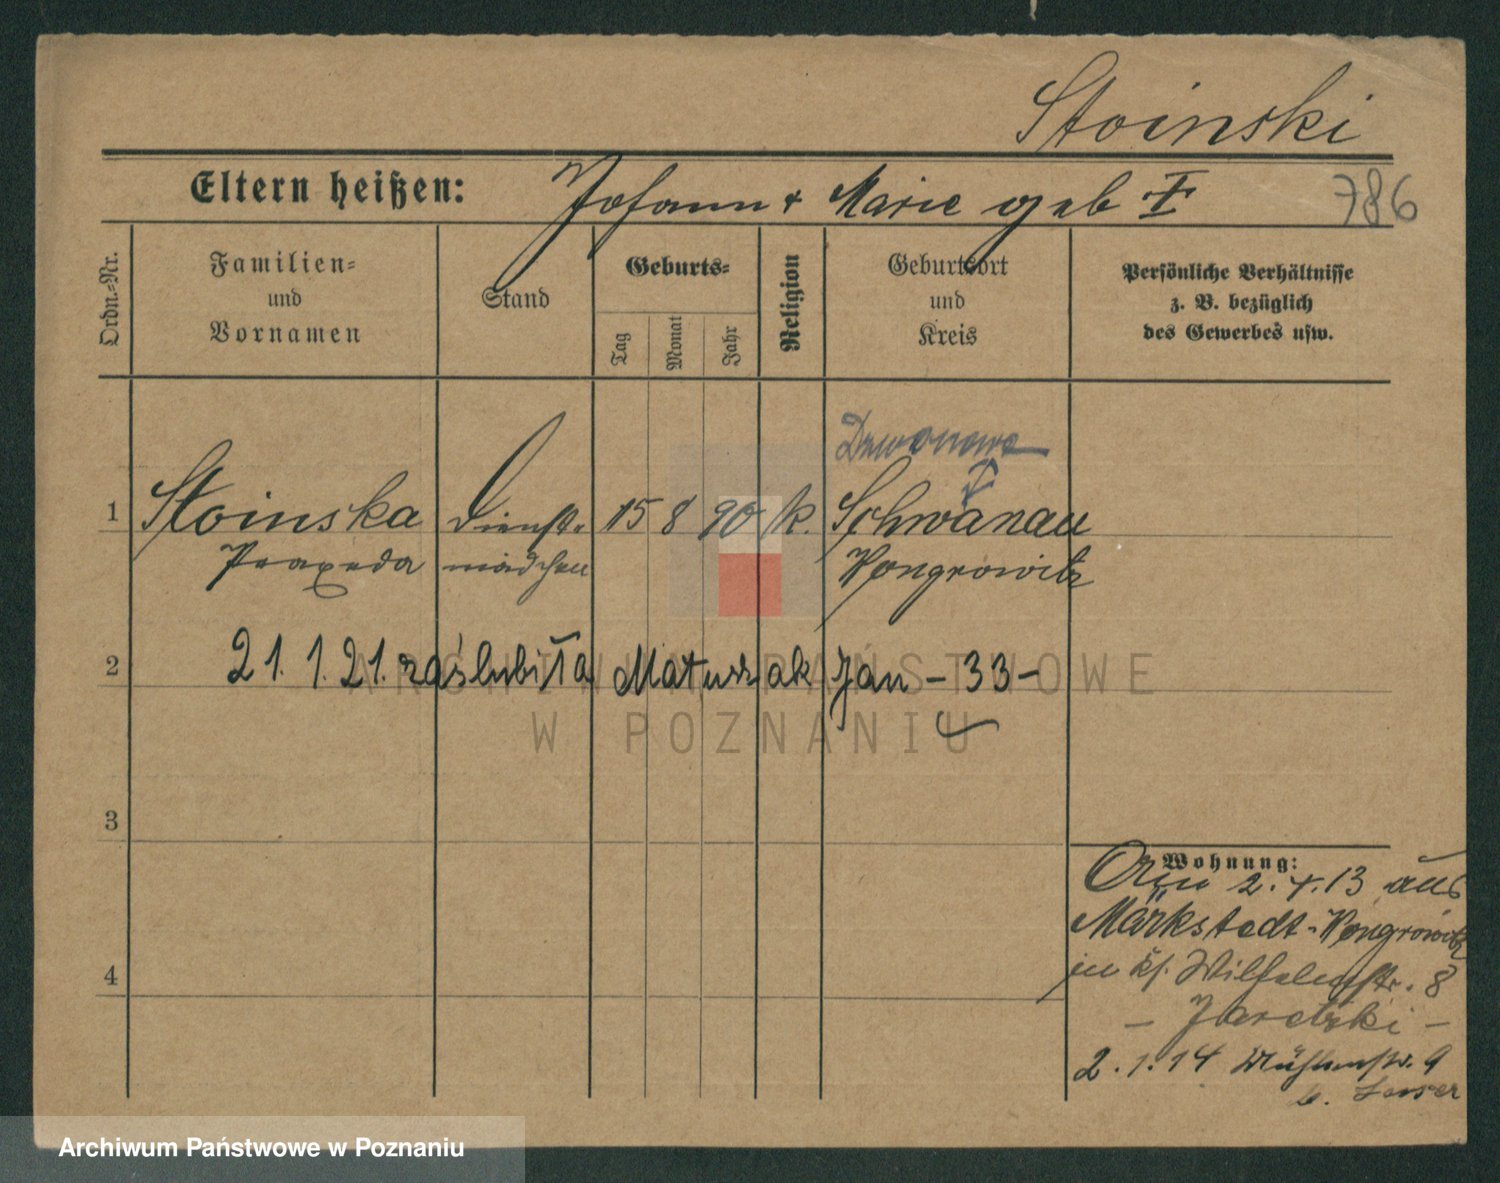 Stoinski
Eltern heißen: Johann + Marie geb F
786
Ordn.-Nr.
Familien-
und
Vornamen
Stand
Geburts-
Tag
Monat
Jahr
Religion
Geburtsort
und
Kreis
Persönliche Verhältnisse
z. B. bezüglich
des Gewerbes usw.
Dzwonowo
1 Stoinska Dienst- 15 8 90 k. Schwanau
Praxeda mädchen Wongrowitz
2 21. 1. 21. zaślubiła Matuszak Jan - 33 -
3
4
Wohnung:
2. 4. 13 aus
Märkstädt - Wongrowitz
in Wilhelmstr. 8
- Jaretzki -
2. 1. 14 Mühlenstr. 9
b.
ARCHIWUM PAŃSTWOWE
W POZNANIU
Archiwum Państwowe w Poznaniu